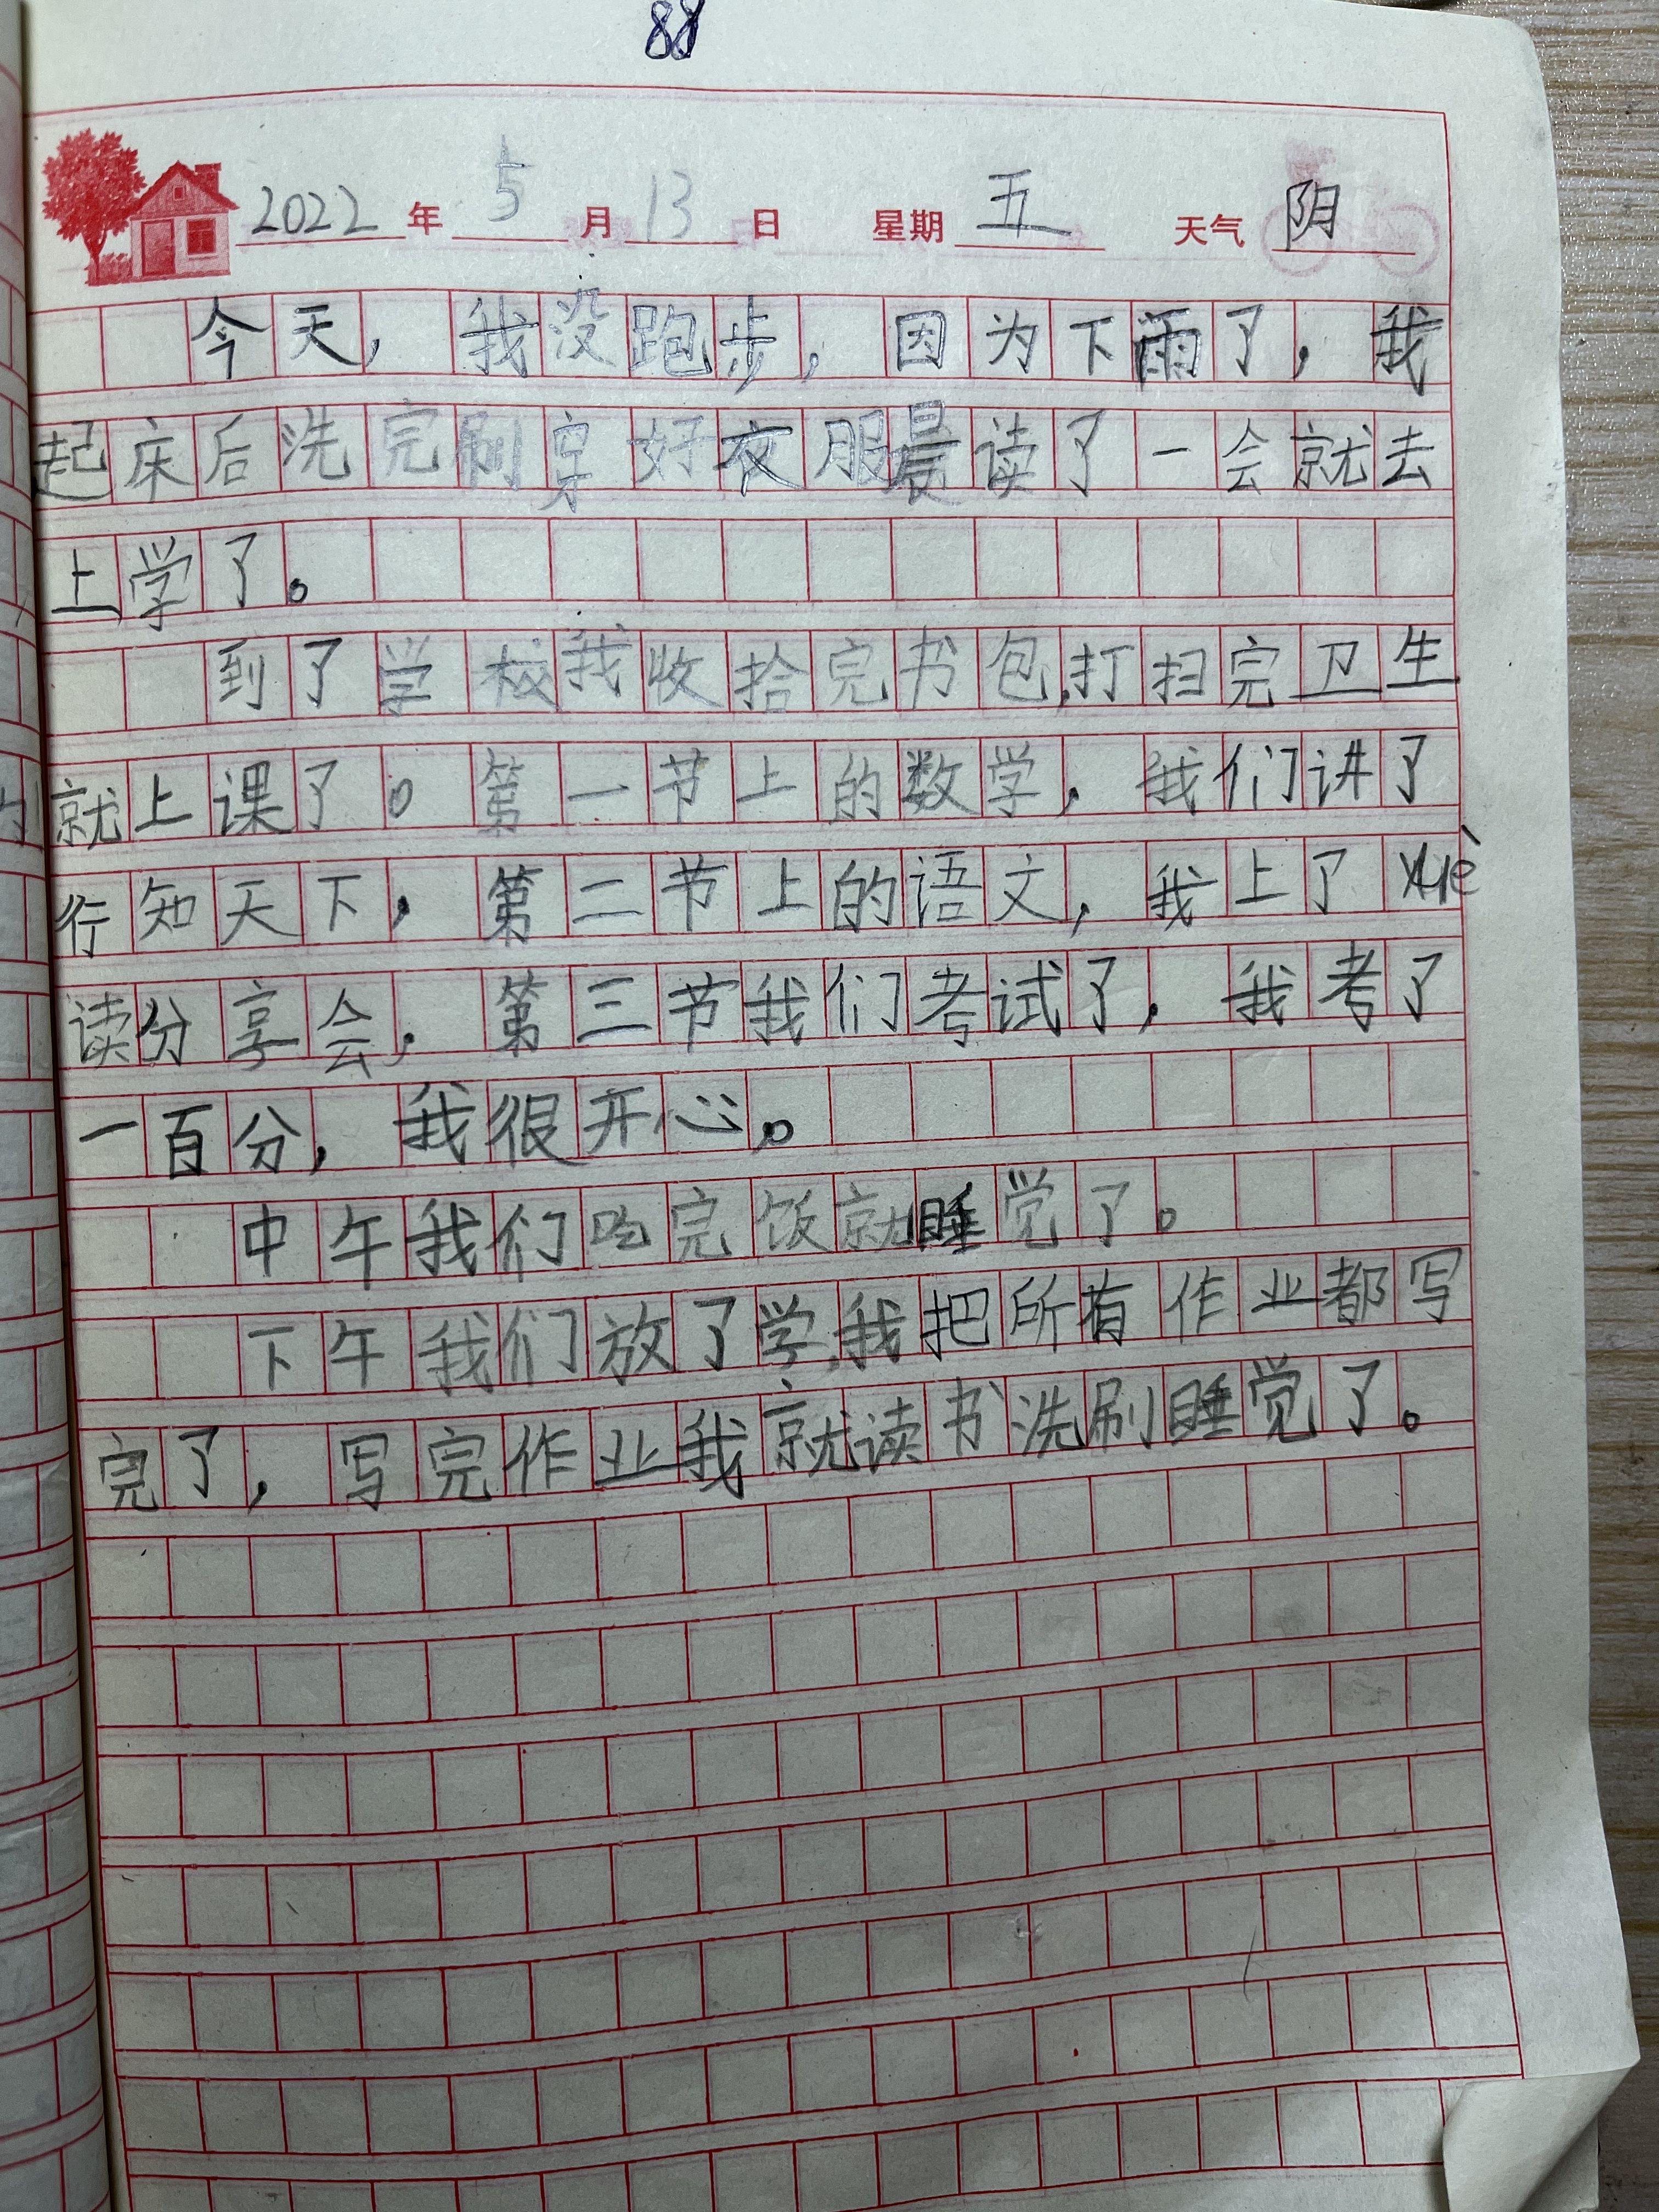 88
2022年5月13日 星期五 天气阴
今天,我没跑步,因为下雨了,我
起床后洗完刷穿好衣服晨读了一会就去
上学了。
到了学校我收拾完书包,打扫完卫生
就上课了。第一节上的数学,我们讲了
行知天下,第二节上的语文,我上了xuè
读分享会,第三节我们考试了,我考了
一百分,我很开心。
中午我们吃完饭就睡觉了。
下午我们放了学,我把所有作业都写
完了,写完作业我就读书洗刷睡觉了。